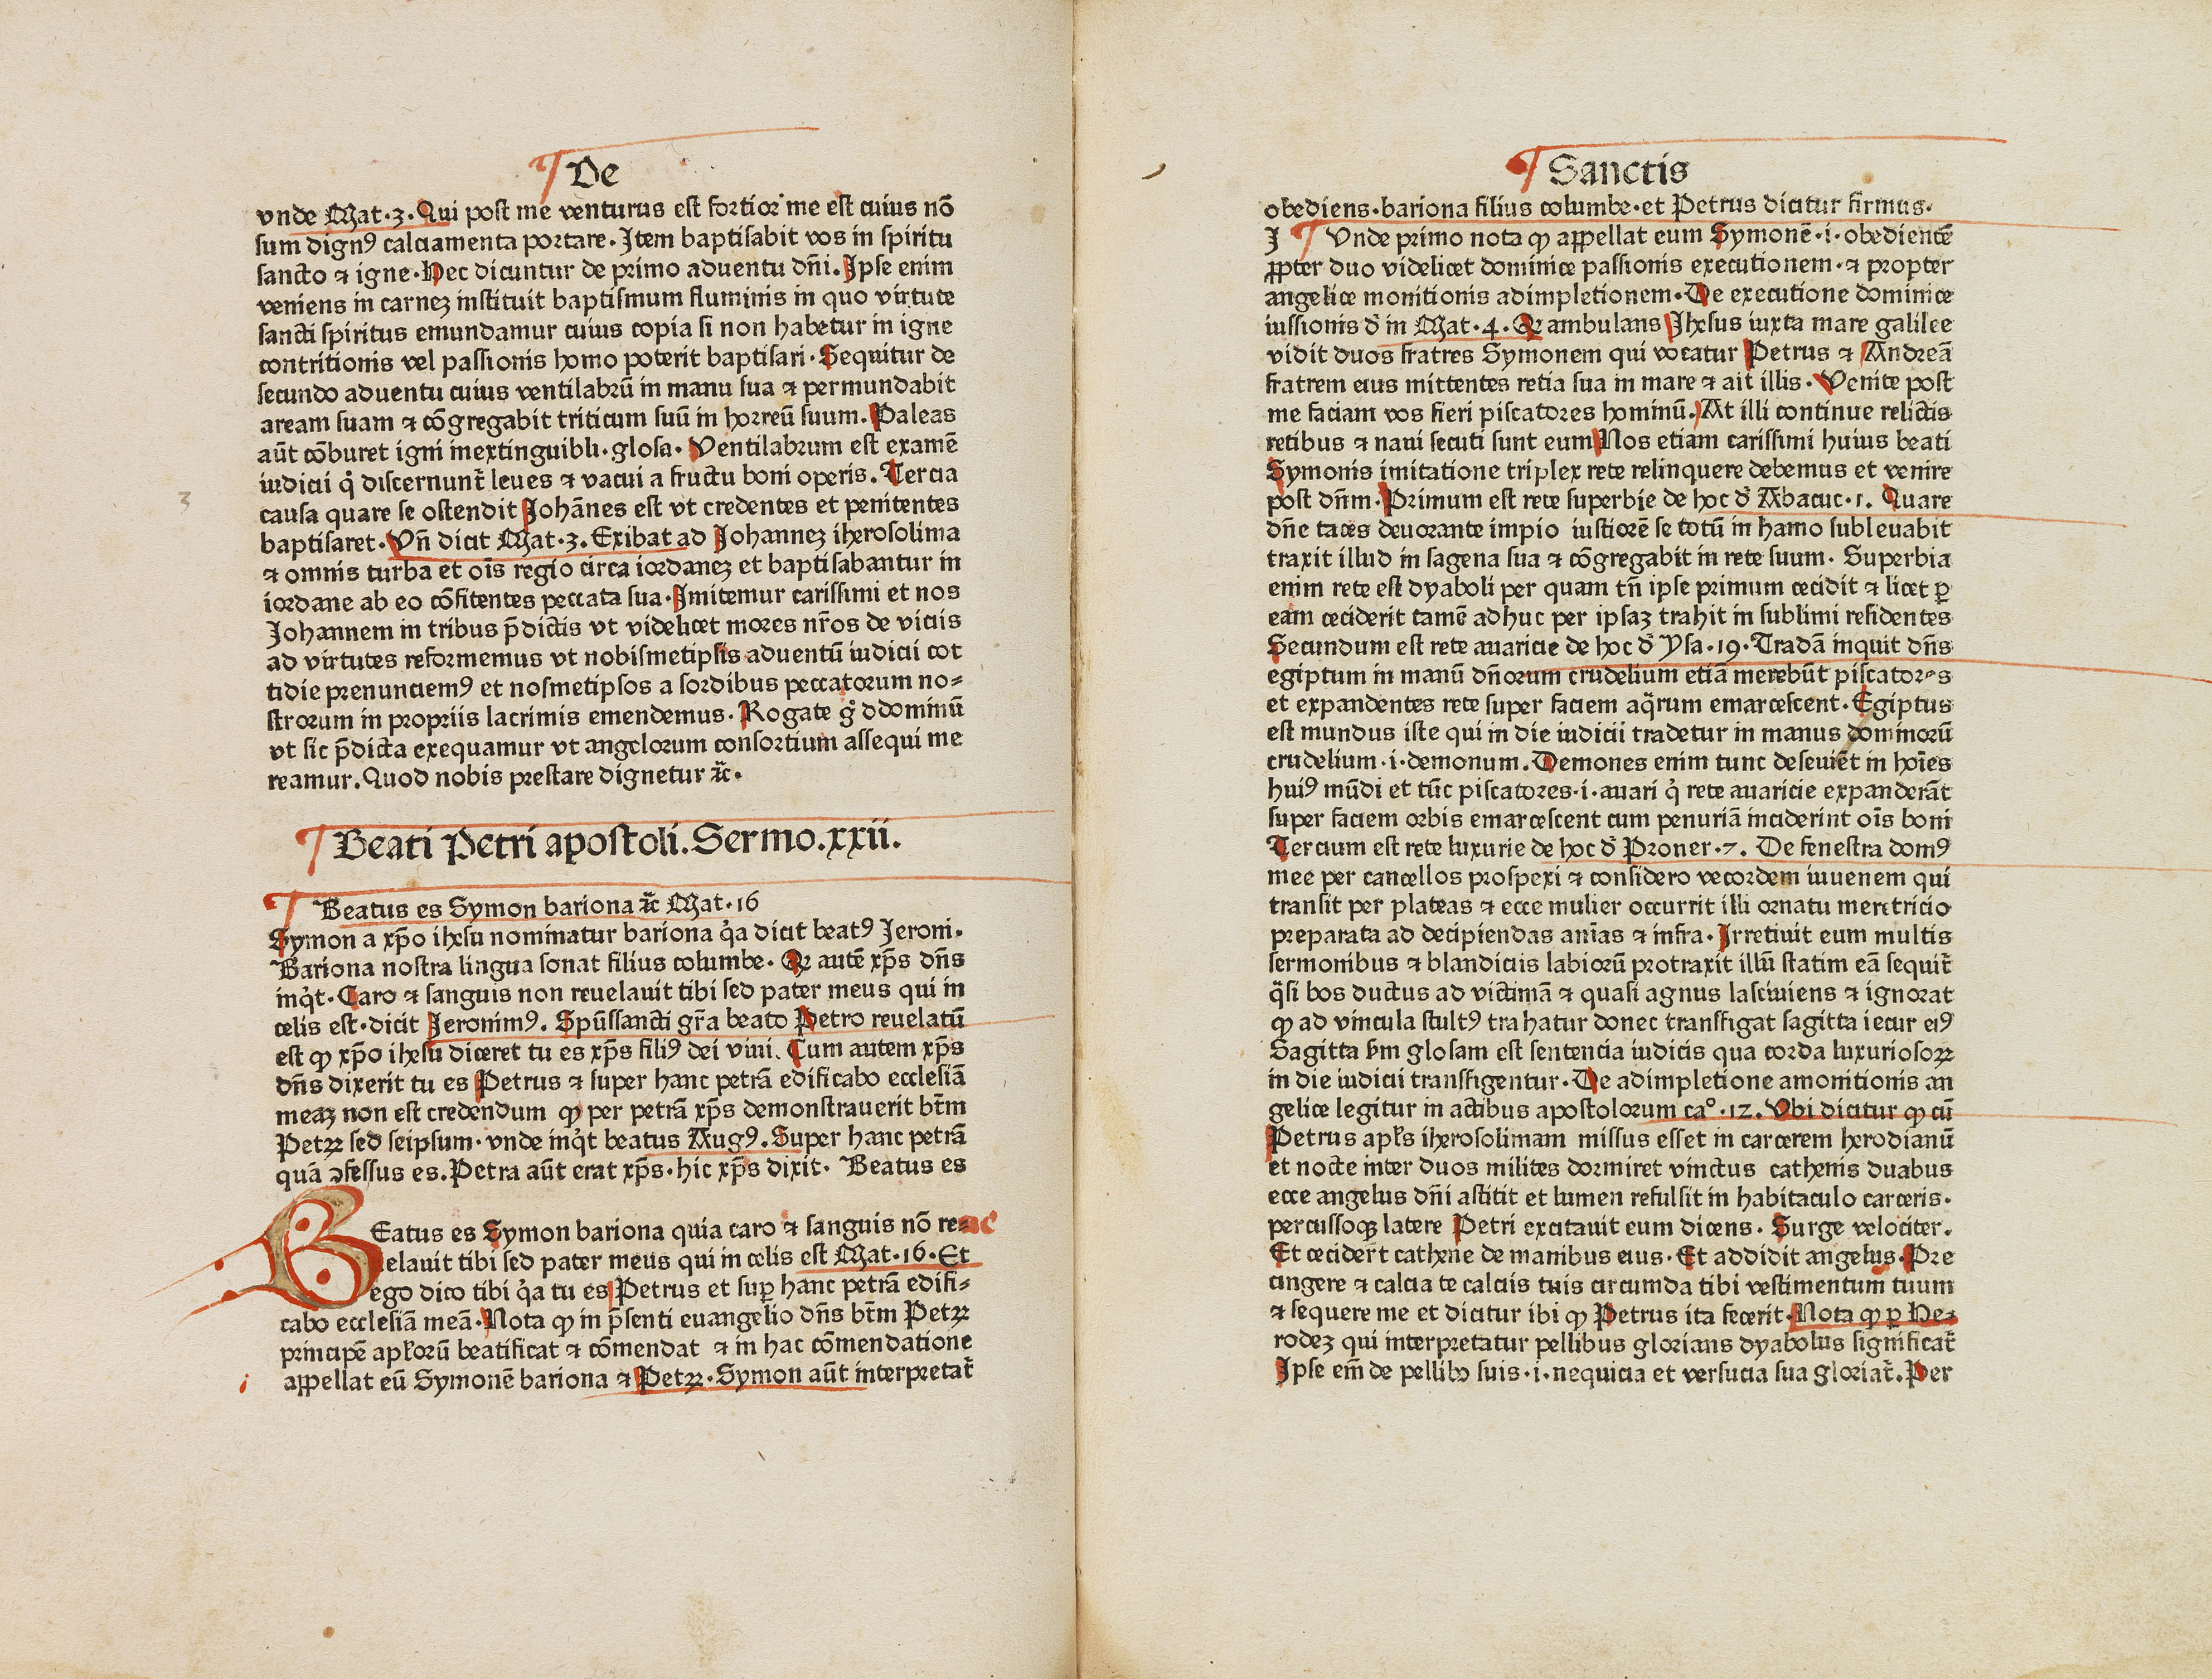 De
vnde Mat·3·Qui post me venturus est fortior me est cuius nō
sum dignꝰ calciamenta portare·Item baptisabit vos in spiritu
sancto ⁊ igne·Hec dicuntur de primo aduentu dn̄i·Ipse enim
veniens in carneꝫ instituit baptismum fluminis in quo virtute
sancti spiritus emundamur cuius copia si non habetur in igne
contritionis vel passionis homo poterit baptisari·Sequitur de
secundo aduentu cuius ventilabrū in manu sua ⁊ permundabit
aream suam ⁊ cōgregabit triticum suū in horreū suum·Paleas
aūt cōburet igni inextinguibli·glosa·Ventilabrum est examē
iudicij qͦ discernunt᷑ leues ⁊ vacui a fructu boni operis·Tercia
3
causa quare se ostendit Johānes est vt credentes et penitentes
baptisaret·Vn̄ dicit Mat·3·Exibat ad Johanneꝫ iherosolima
⁊ omnis turba et ois̄ regio circa iordaneꝫ et baptisabantur in
iordane ab eo cōfitentes peccata sua·Imitemur carissimi et nos
Johannem in tribus p̄dictis vt videlicet mores nr̄os de viciis
ad virtutes reformemus vt nobismetipsis aduentū iudicij cot
tidie prenunciemꝰ et nosmetipsos a sordibus peccatorum no⸗
strorum in propriis lacrimis emendemus·Rogate gͦ ddominū
vt sic p̄dicta exequamur vt angelorum consortium assequi me
reamur·Quod nobis prestare dignetur ⁊c̄·
Beati Petri apostoli·Sermo·xxii·
Beatus es Symon bariona ⁊c̄ Mat·16
Symon a xp̄o ihesu nominatur bariona qͣa dicit beatꝰ Jeroni·
Bariona nostra lingua sonat filius columbe·Qꝛ autē xp̄s dn̄s
inqͥt·Caro ⁊ sanguis non reuelauit tibi sed pater meus qui in
celis est·dicit Jeronimꝰ·Spūssancti gr̄a beato Petro reuelatū
est ꝙ xp̄o ihesu diceret tu es xp̄s filiꝰ dei viui·Cum autem xp̄s
dn̄s dixerit tu es Petrus ⁊ super hanc petrā edificabo ecclesiā
meaꝫ non est credendum ꝙ per petrā xp̄s demonstrauerit bt̄m
Petꝝ sed seipsum·vnde inqͥt beatus Augꝰ·Super hanc petrā
quā ↄfessus es·Petra aūt erat xp̄s·hic xp̄s dixit·Beatus es
BEatus es Symon bariona quia caro ⁊ sanguis nō re⸗
uelauit tibi sed pater meus qui in celis est Mat·16·Et
ego dico tibi qͣa tu es Petrus et suꝑ hanc petrā edifi⸗
cabo ecclesiā meā·Nota ꝙ in p̄senti euangelio dn̄s bt̄m Petꝝ
principē apłorū beatificat ⁊ cōmendat ⁊ in hac cōmendatione
appellat eū Symonē bariona ⁊ Petꝝ·Symon aūt interpretat᷑
Sanctis
obediens·bariona filius columbe·et Petrus dicitur firmus·
I Vnde primo nota ꝙ appellat eum Symonē·i·obedientē
ꝓpter duo videlicet dominice passionis executionem·⁊ propter
angelice monitionis adimpletionem·De executione dominice
iussionis dͬ in Mat·4·Qꝛ ambulans Ihesus iuxta mare galilee
vidit duos fratres Symonem qui vocatur Petrus ⁊ Andreā
fratrem eius mittentes retia sua in mare ⁊ ait illis·Venite post
me faciam vos fieri piscatores hominū·At illi continue relictis
retibus ⁊ naui secuti sunt eum Nos etiam carissimi huius beati
Symonis imitatione triplex rete relinquere debemus et venire
post dn̄m·Primum est rete superbie de hoc dͬ Abacuc·1·Quare
dn̄e taces deuorante impio iustiorē se totū in hamo subleuabit
traxit illud in sagena sua ⁊ cōgregabit in rete suum·Superbia
enim rete est dyaboli per quam tn̄ ipse primum cecidit ⁊ licet ꝑ
eam ceciderit tamē adhuc per ipsaꝫ trahit in sublimi residentes
Secundum est rete auaricie de hoc dͬ Ysa·19·Tradā inquit dn̄s
egiptum in manū dn̄orum crudelium etiā merebūt piscatores
et expandentes rete super faciem aq̄rum emarcescent·Egiptus
est mundus iste qui in die iudicii tradetur in manus dominorū
crudelium·i·demonum·Demones enim tunc deseuiēt in hoīes
huiꝰ mūdi et tūc piscatores·i·auari qͥ rete auaricie expanderāt
super faciem orbis emarcescent cum penuriā inciderint oīs boni
Tercium est rete luxurie de hoc dͬ Prouer·7·De fenestra domꝰ
mee per cancellos prospexi ⁊ considero vecordem iuuenem qui
transit per plateas ⁊ ecce mulier occurrit illi ornatu meretricio
preparata ad decipiendas anīas ⁊ infra·Irretiuit eum multis
sermonibus ⁊ blandiciis labiorū protraxit illū statim eā sequit᷑
qͣsi bos ductus ad victimā ⁊ quasi agnus lasciuiens ⁊ ignorat
ꝙ ad vincula stultꝰ trahatur donec transfigat sagitta iecur eiꝰ
Sagitta sm̄ glosam est sentencia iudicis qua corda luxuriosoꝝ
in die iudicij transfigentur·De adimpletione amonitionis an
gelice legitur in actibus apostolorum caº·12·Vbi dicitur ꝙ cū
Petrus apłs iherosolimam missus esset in carcerem herodianū
et nocte inter duos milites dormiret vinctus cathenis duabus
ecce angelus dn̄i astitit et lumen refulsit in habitaculo carceris·
percussoqꝫ latere Petri excitauit eum dicens·Surge velociter·
Et ceciderūt cathene de manibus eius·Et addidit angelus·Pre
cingere ⁊ calcia te calciis tuis circumda tibi vestimentum tuum
⁊ sequere me et dicitur ibi ꝙ Petrus ita fecerit·Nota ꝙ ꝑ He⸗
rodeꝫ qui interpretatur pellibus glorians dyabolus significat᷑
Ipse em̄ de pellibꝫ suis·i·nequicia et versucia sua gloriat᷑·Per